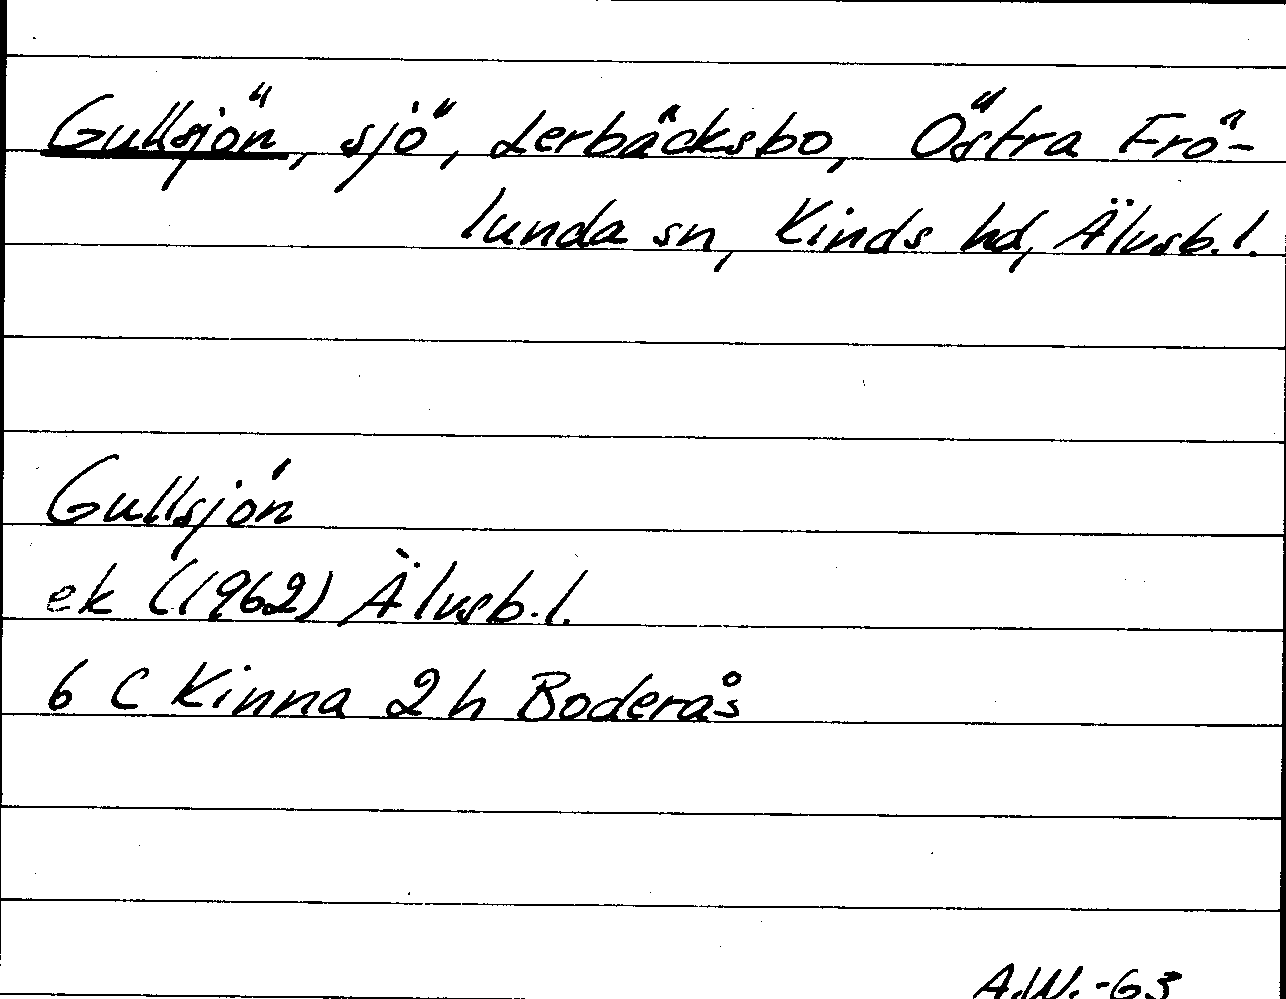 Gullsjön, sjö, Lerbäcksbo, Östra Frö-
lunda sn, Kinds hd, Älvsb.l.
Gullsjön
ek (1962) Älvsb.l.
6 C Kinna 2 h Boderås
A.W.-63